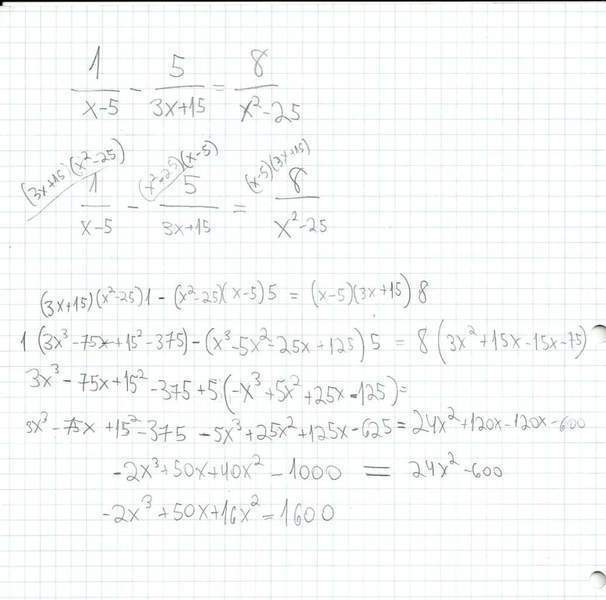 1/(x-5) - 5/(3x+15) = 8/(x²-25)
(3x+15)(x²-25) (x²-25)(x-5) (x-5)(3x+15)
1/(x-5) - 5/(3x+15) = 8/(x²-25)
(3x+15)(x²-25)1 - (x²-25)(x-5)5 = (x-5)(3x+15)8
1(3x³-75x+15²-375)-(x³-5x²-25x+125)5 = 8(3x²+15x-15x-75)
3x³-75x+15²-375+5(-x³+5x²+25x-125)=
3x³-75x+15²-375-5x³+25x²+125x-625=24x²+120x-120x-600
-2x³+50x+40x²-1000 = 24x²-600
-2x³+50x+16x²=1600